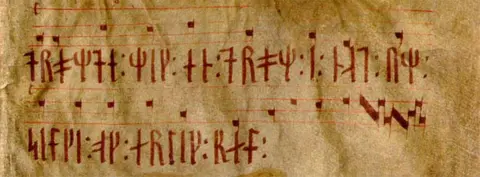 ᛑᚱᚯᛘᛑᛂ᛬ᛘᛁᚴ᛬ᛂᚿ᛬ᛑᚱᚯᛘ᛬ᛁ᛬ᚿᛆᛐ᛬ᚢᛘ᛬
ᛋᛁᛚᚴᛁ᛬ᚯᚴ᛬ᛅᚱᛚᛁᚴ᛬ᛔᛅᛚ᛬